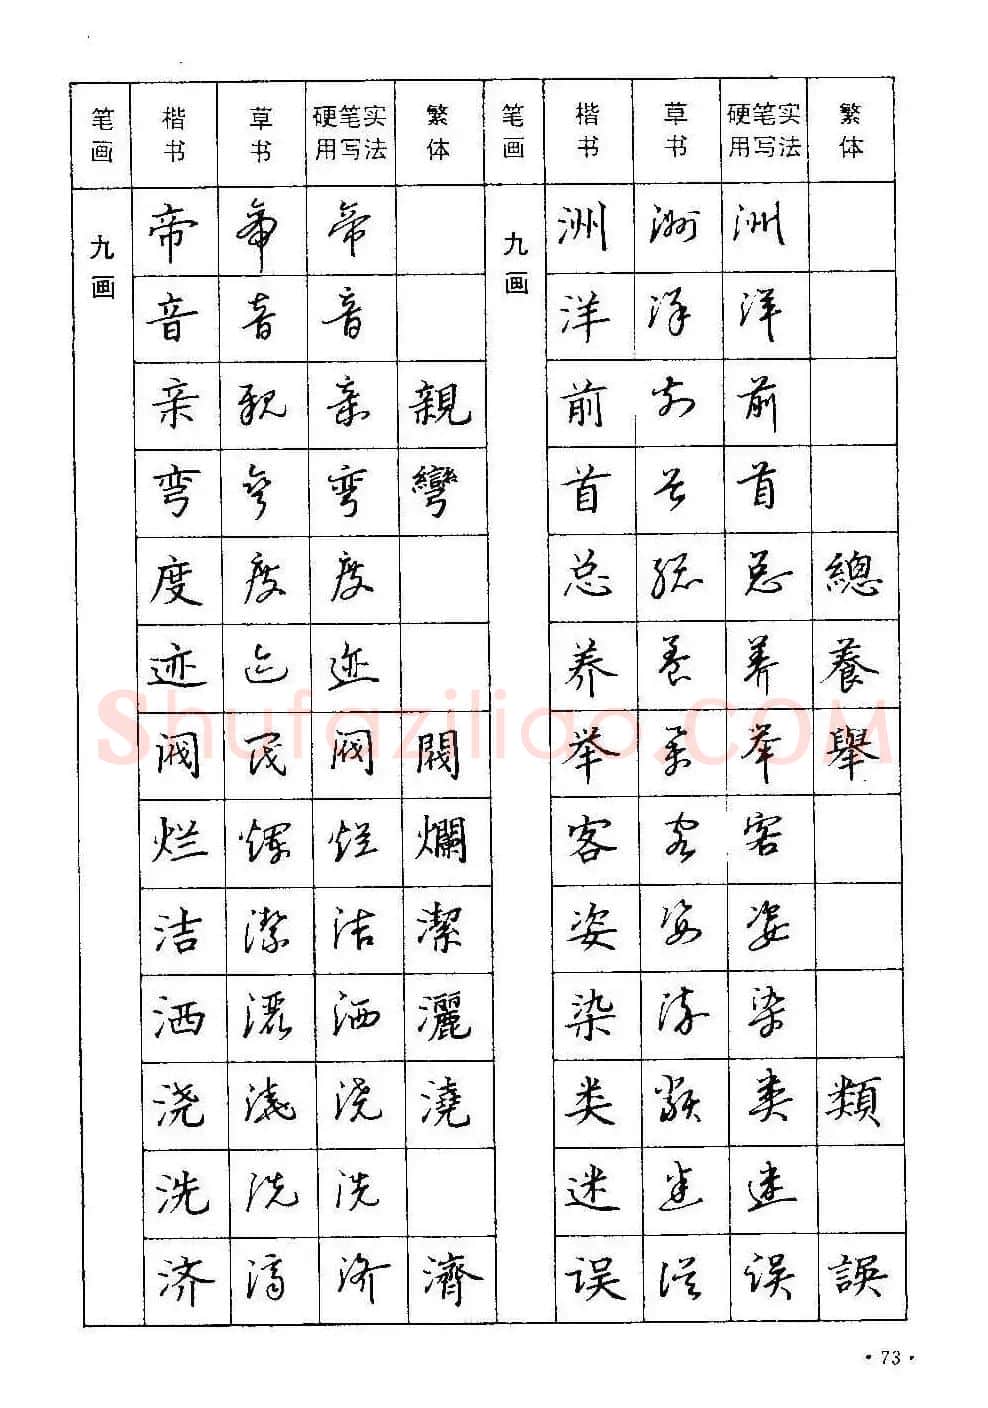 笔画 楷书 草书 硬笔实用写法 繁体 笔画 楷书 草书 硬笔实用写法 繁体
九画 帝 帝 帝 九画 洲 洲 洲
音 音 音 洋 洋 洋
亲 亲 亲 親 前 前 前
弯 弯 弯 彎 首 首 首
度 度 度 总 总 总 總
迹 迹 迹 养 养 养 養
阀 阀 阀 閥 举 举 举 舉
烂 烂 烂 爛 客 客 客
洁 潔 洁 潔 姿 姿 姿
洒 灑 洒 灑 染 染 染
浇 浇 浇 澆 类 類 类 類
洗 洗 洗 迷 迷 迷
济 济 济 濟 误 误 误 誤
Shufaziliao.COM
·73·